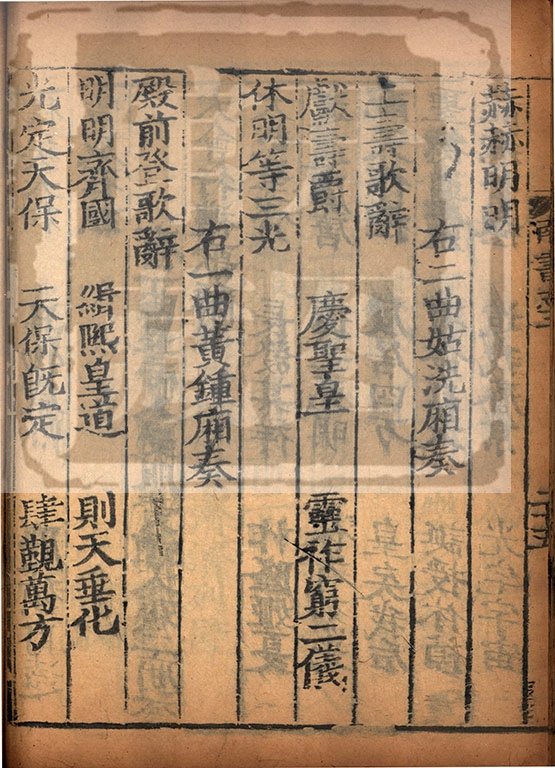 赫赫明明
右二曲姑洗廂奏
上壽歌辭
獻壽爵 慶聖皇 靈祚窮二儀
休明等三光
右一曲黃鍾廂奏
殿前登歌辭
明明齊國 緝熙皇道 則天垂化
光定天保 天保旣定 肆覲萬方